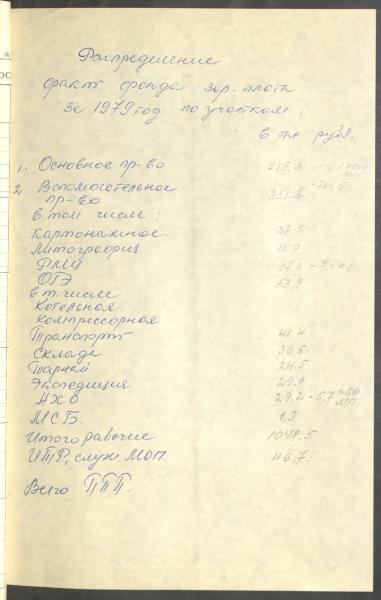 Распределение
факт фонда зар. платы
за 1979 год по участкам.
в т.к. рубл.
1. Основное пр-во
2 Вспомогательное
пр-во 331.3
в том числе:
Картонажное 27.5
Литография 11.0
РМЦ 97.0
ОГЭ 53.9
в т. числе
Котельная
Компрессорная
Транспорт 41.4
Склады 30.5
Тарный 24.5
Экспедиция 29.0
АХО 29.2 - 5.7
МСБ. 1.3
Итого рабочие 1048.5
ИТР, служ МОП. 116.7
Всего ППП.